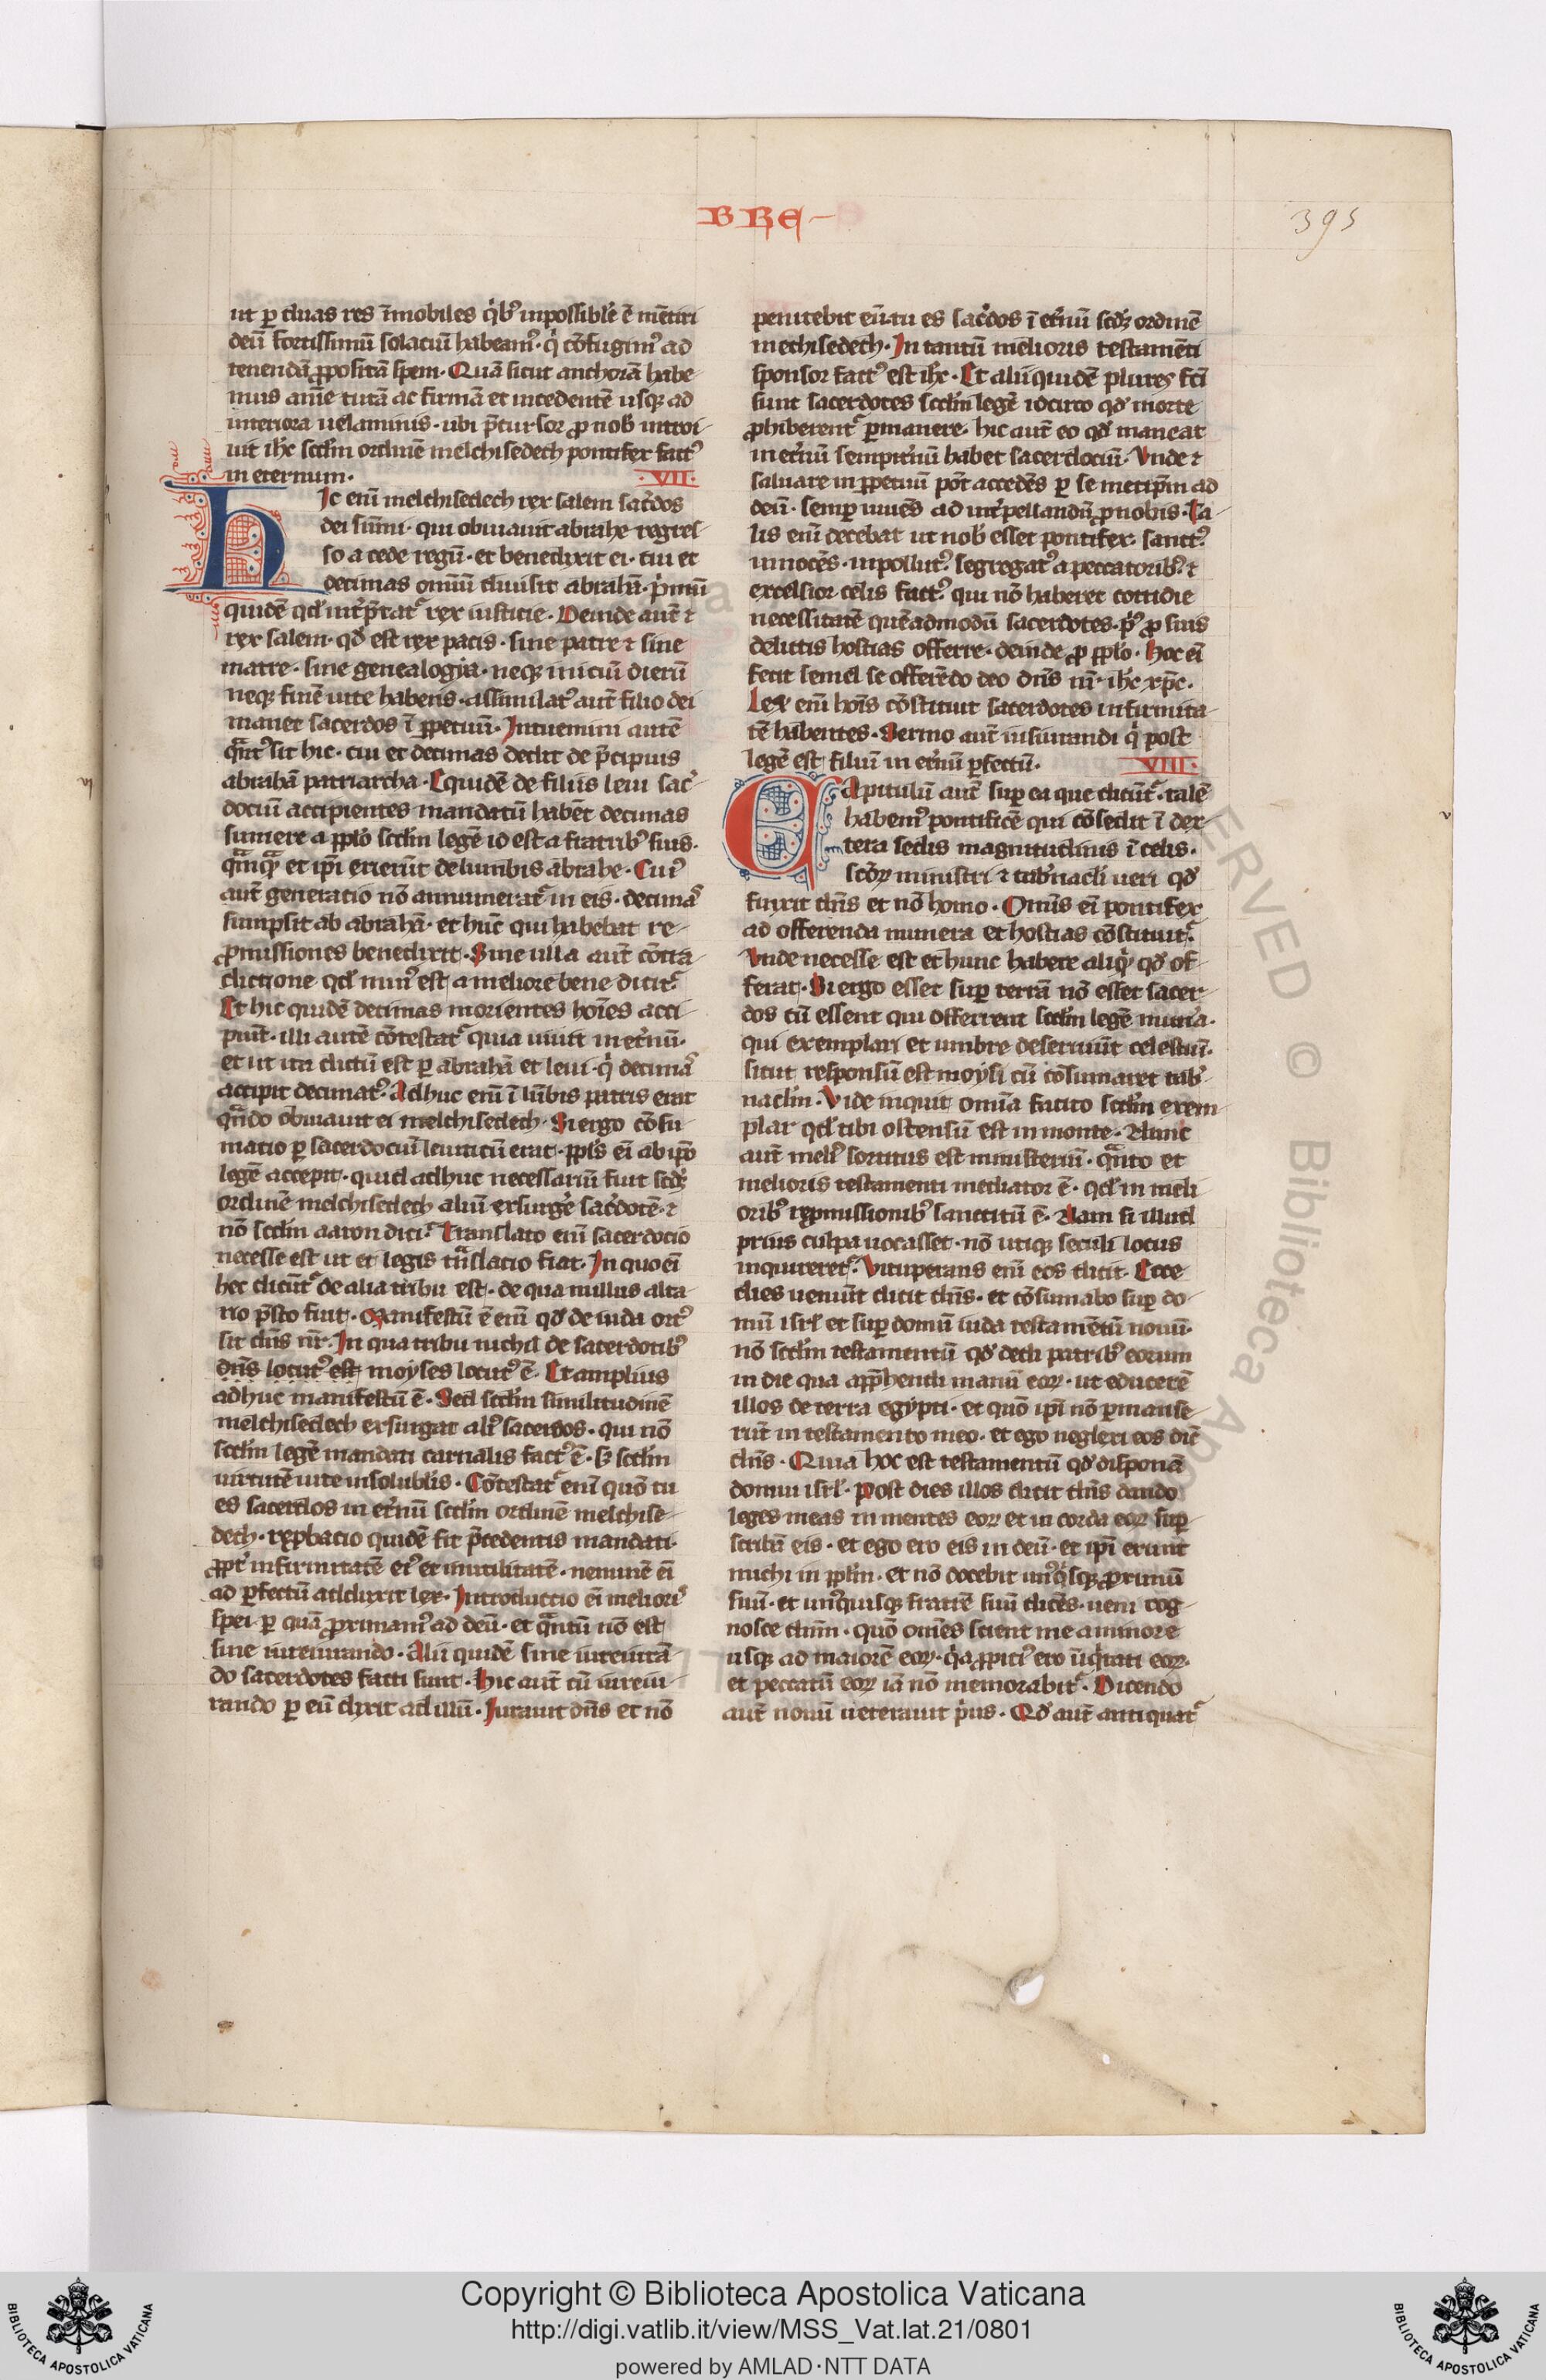 BRE
395
ut ꝑ duas res īmobiles q̇bꝰ impossibile ē mētiri
deū fortissimū solaciū habeamꝰ· q̇ cōfugimꝰ ad
tenendā ꝓpositā spem· Quā sicut anchorā habe
mus anīe tutā ac firmā et incedentē usqꝫ ad
interiora uelaminis· ubi p̄cursor ꝓ nob̄ introi
uit ih̄c scd̄m ordinē melchisedech pontifex factꝰ
in eternum· ·VII·
hIc enī melchisedech rex salem sac̓dos
dei sūmi· qui obuiauit abrahe regres
so a cede regū· et benedixit ei· cui et
decimas omīū diuisit abrahā· p̓mū
quidē qd̓ int̓p̄tat᷑ rex iusticie· Deinde autē ⁊
rex salem· qd̓ est rex pacis· sine patre ⁊ sine
matre· sine genealogia· neqꝫ iniciū dierū
neqꝫ finē uite habens· assimilatꝰ aut̄ filio dei
manet sacerdos ī ꝑpetuū· Intuemini autē
qͣntꝰ sit hic· cui et decimas dedit de p̄cipuis
abrahā patriarcha· Equidē de filiis leui sac̓
dociū accipientes mandatū habēt decimas
sumere a ppl̓o scd̄m legē id est a fratribꝰ suis·
qͣmqͣ et ip̄i exierūt de lumbis abrahe· Cuiꝰ
aut̄ generatio nō annumerat᷑ in eis· decimas
sumpsit ab abrahā· et hūc qui habebat re
ꝓmissiones benedixit· Sine ulla aut̄ cōtra
dictione qd̓ minꝰ est a meliore bene dicit᷑
Et hic quidē decimas morientes hoīes acci
piūt· illi autē cōtestat᷑ quia uiuit in et̓nū·
et ut ita dictū est ꝑ abrahā et leui· q̇ decimas
accipit decimatꝰ· Adhuc enī ī lūbis patris erat
qͣndo obuiauit ei melchisedech· Si ergo cōsu
matio ꝑ sacerdociū leuiticū erat· ppl̓s eī ab ip̄o
legē accepit· quid adhuc necessariū fuit scd̓ꝫ
ordinē melchisedech aliū exsurgere sac̓dotē· ⁊
nō scd̄m aaron dici᷑· Translato enī sacerdocio
necesse est ut et legis trāslacio fiat· In quo eī
hec dicūt᷑ de alia tribu est· de qua nullus alta
rio p̄sto fuit· Manifestū ē enī qd̓ de iuda ortꝰ
sit dn̄s nr̄· In qua tribu nichil de sacerdotibꝰ
dn̄s locutꝰ est moyses locutꝰ ē· Et amplius
adhuc manifestū ē· Sed scd̄m similitudinē
melchisedech exsurgat al̓ꝰ sacerdos· qui nō
scd̄m legē mandati carnalis factꝰ ē· sꝫ scd̄m
uirtutē uite insolubilis· Cōtestat᷑ enī quō tu
es sacerdos in et̓nū scd̄m ordinē melchise
dech· reꝓbacio quidē fit p̄cedentis mandati·
ꝓpt̓ infirmitatē eiꝰ et inutilitatē· neminē eī
ad ꝑfectū adduxit lex· Introductio eī melioris
spei· ꝑ quā ꝓximamꝰ ad deū· et qͣntū nō est
sine iureiurando· Alii quidē sine iureiurā
do sacerdotes facti sunt· Hic aut̄ cū iureiu
rando ꝑ eū dixit ad illū· Iurauit dn̄s et nō
penitebit eū· tu es sac̓dos ī et̓nū scd̓ꝫ ordinē
melchisedech· In tantū melioris testamēti
sponsor factꝰ est ih̄c· Et alii quidē plures fc̄i
sunt sacerdotes scd̄m legē idcirco qd̓ morte
ꝓhiberent᷑ ꝑmanere· hic aut̄ eo qd̓ maneat
in et̓nū sempit̓nū habet sacerdociū· Vnde ⁊
saluare in ꝑpetuū pōt accedēs ꝑ semetip̄m ad
deū· semꝑ uiuēs ad int̓pellandū ꝓ nobis· Ta
lis enī decebat ut nob̄ esset pontifex· sanctꝰ
innocēs· inpollutꝰ· segregatꝰ a peccatoribꝰ· ⁊
excelsior celis factꝰ· qui nō haberet cottidie
necessitatē quēadmodū sacerdotes· p̓ꝰ ꝓ suis
delictis hostias offerre· deinde ꝓ ppl̓o· Hoc eī
fecit semel se offerēdo deo dn̄s nr̄· ih̄c xp̄c·
Lex enī hoīs cōstituit sacerdotes infirmita
tē habentes· Sermo aut̄ iusiurandi q̇ post
legē est filiū in et̓nū ꝑfectū· ·VIII·
CApitulū autē suꝑ ea que dicūt᷑· talē
habemꝰ pontificē qui cōsedit ī dex
tera sedis magnitudinis ī celis·
sc̄oꝝ ministri ⁊ tab̓nacli ueri qd̓
fixit dn̄s et nō homo· Omīs eī pontifex
ad offerenda munera et hostias cōstituit᷑·
Vnde necesse est et hunc habere aliqͥd qd̓ of
ferat· Si ergo esset suꝑ terrā nō esset sacer
dos cū essent qui offerrent scd̄m legē mun̓a·
qui exemplari et umbre deseruiūt celestiū·
sicut responsū est moysi cū cōsumaret tab̓
naclm̄· Vide inquit omīa facito scd̄m exem
plar qd̓ tibi ostensū est in monte· Nunc
aut̄ meliꝰ sortitus est ministeriū· qͣnto et
melioris testamenti mediator ē· qd̓ in meli
oribꝰ reꝓmissionibꝰ sanctitū ē· Nam si illud
prius culpa uocasset· nō utiqꝫ secūdi locus
inquireret᷑· Vituperans enī eos dicit· Ecce
dies ueniūt dicit dn̄s· et cōsumabo suꝑ do
mū isrl̓ et suꝑ domū iuda testamētū nouū·
nō scd̄m testamentū qd̓ dedi patribꝰ eorum
in die qua app̄hendi manū eoꝝ· ut educerē
illos de terra egypti· et quō ip̄i nō ꝑmanse
rūt in testamento meo· et ego neglexi eos dic̄
dn̄s· Quia hoc est testamentū qd̓ disponā
domui isrl̓· Post dies illos dicit dn̄s dando
leges meas in mentes eoꝝ et in corda eoꝝ suꝑ
scribā eis· et ego ero eis in deū· et ip̄i erunt
michi in pplm̄· et nō docebit unꝰqͥsqꝫ ꝓximū
suū· et unꝰquisqꝫ fratrē suū dicēs· ueni cog
nosce dnm̄· quō omēs scient me a minore
usqꝫ ad maiorē eoꝝ· q̇a ꝓpitiꝰ ero īiq̇tati eoꝝ·
et peccatū eoꝝ iā nō memorabit᷑· Dicendo
aut̄ nouū ueterauit p̓us· Qd̓ aut̄ antiquat᷑
ERVED © Biblioteca Apo
Copyright © Biblioteca Apostolica Vaticana
http://digi.vatlib.it/view/MSS_Vat.lat.21/0801
powered by AMLAD·NTT DATA
BIBLIOTECA APOSTOLICA VATICANA
BIBLIOTECA APOSTOLICA VATICANA